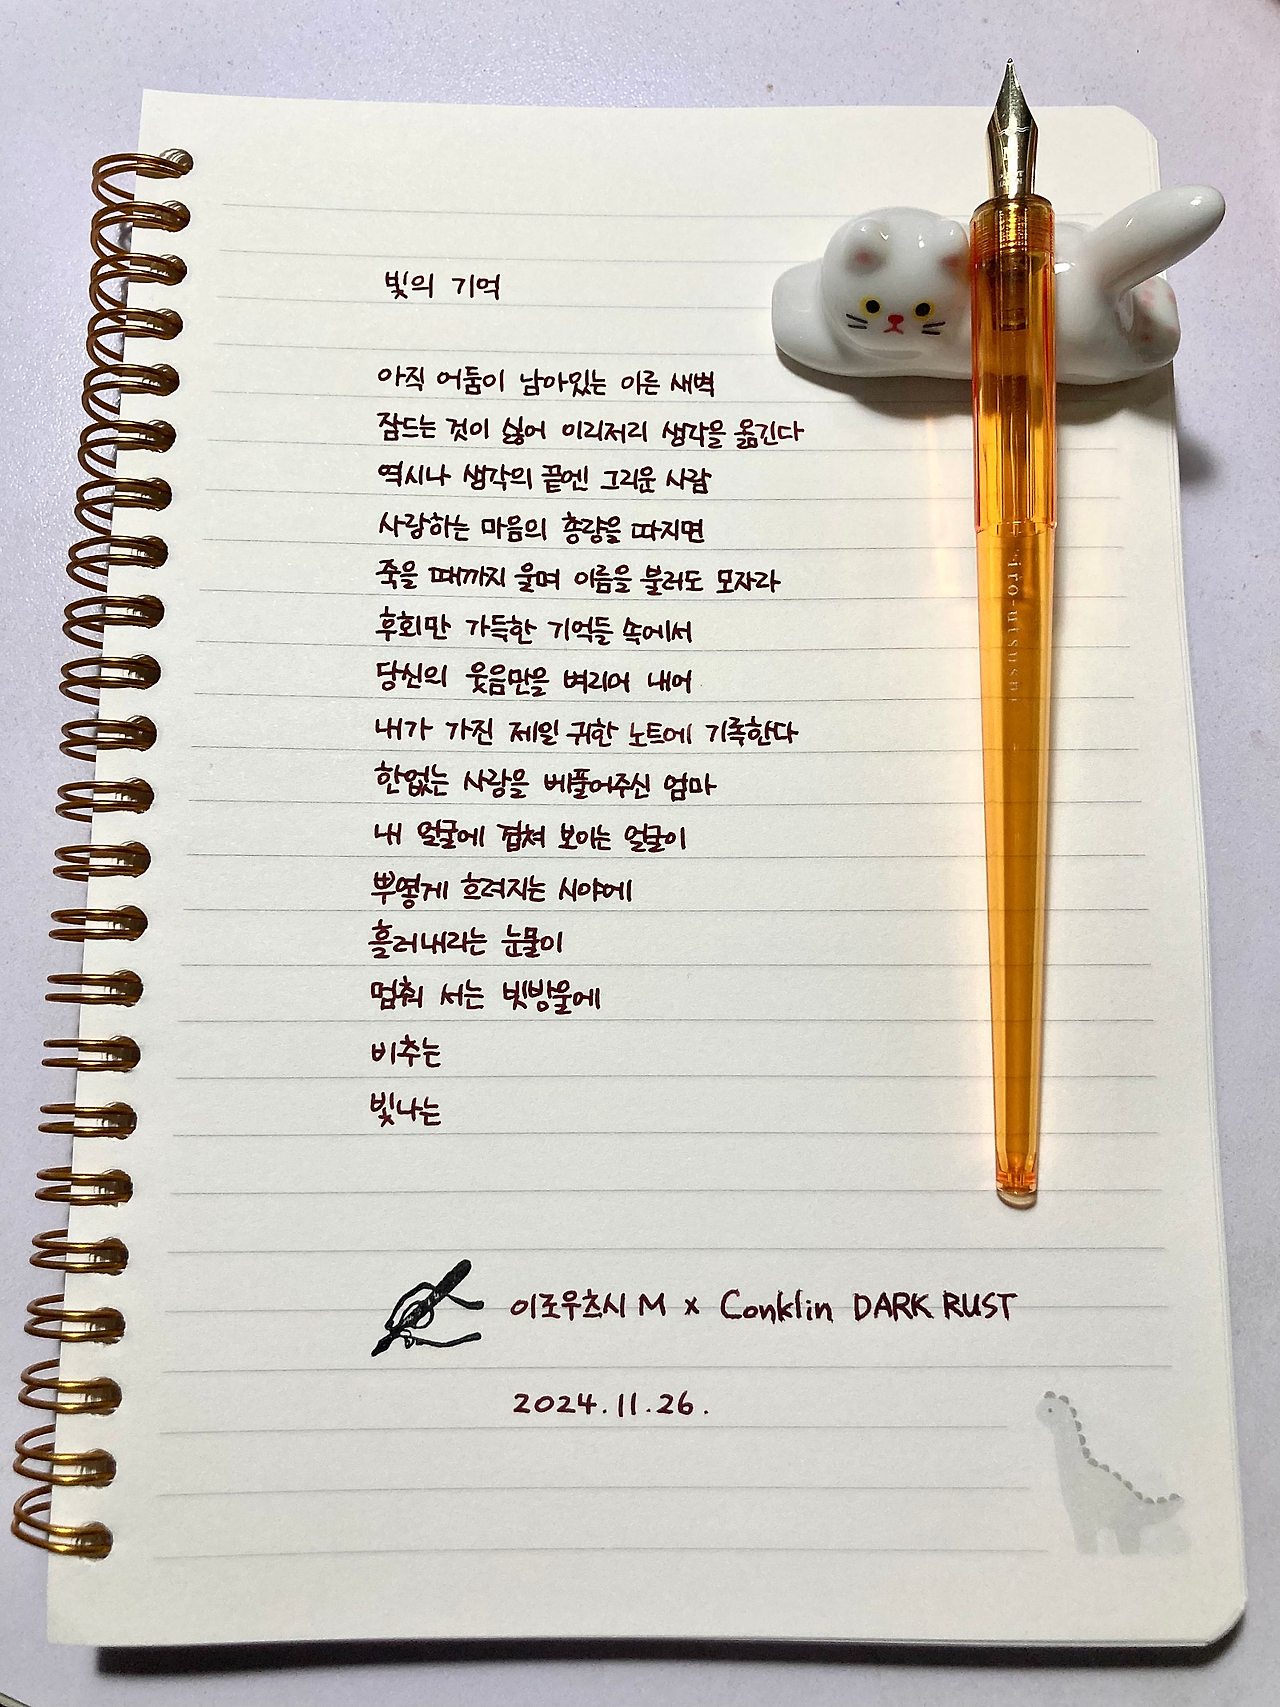 빛의 기억
아직 어둠이 남아있는 이른 새벽
잠드는 것이 싫어 이리저리 생각을 옮긴다
역시나 생각의 끝엔 그리운 사람
사랑하는 마음의 총량을 따지면
죽을 때까지 울며 이름을 불러도 모자라
후회만 가득한 기억들 속에서
당신의 웃음만을 벼리어 내어
내가 가진 제일 귀한 노트에 기록한다
한없는 사랑을 베풀어주신 엄마
내 얼굴에 겹쳐 보이는 얼굴이
뿌옇게 흐려지는 시야에
흘러내리는 눈물이
멈춰 서는 빗방울에
비추는
빛나는
이로우츠시 M x Conklin DARK RUST
2024.11.26.
iro-utsushi